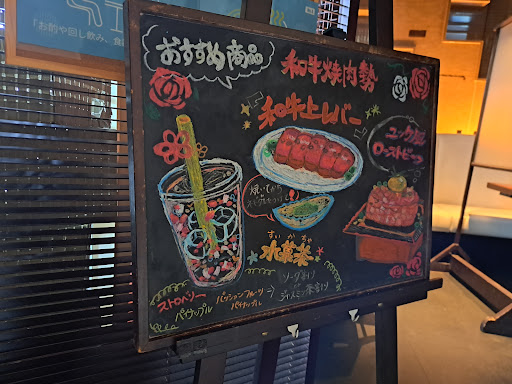 「お酌や回し飲み、
おすすめ商品
和牛焼肉勢
和牛上レバー
ユッケ風
ローストビーフ
焼いてから
すいかちゃ
水菓茶
ソーダ割り
ジャスミン茶割り
ストロベリー
パイナップル
パッションフルーツ
パイナップル